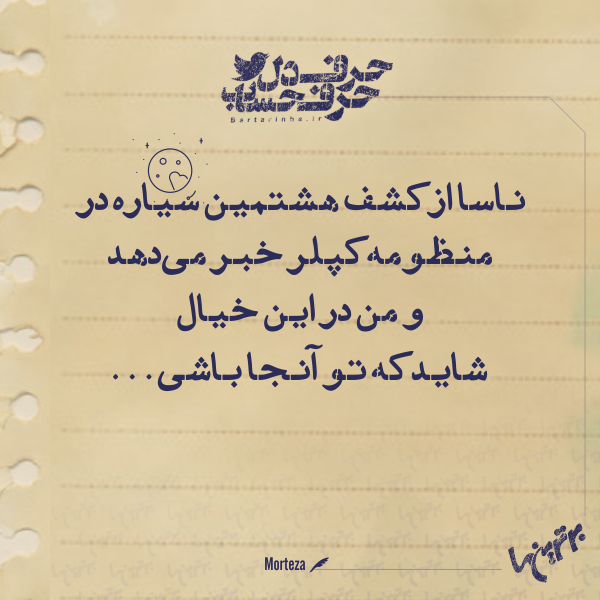 حرف دل
حرف حساب
Bartarinha.ir
ناسا از کشف هشتمین سیاره در
منظومه کپلر خبر می‌دهد
و من در این خیال
شاید که تو آنجا باشی...
Morteza
برترین‌ها